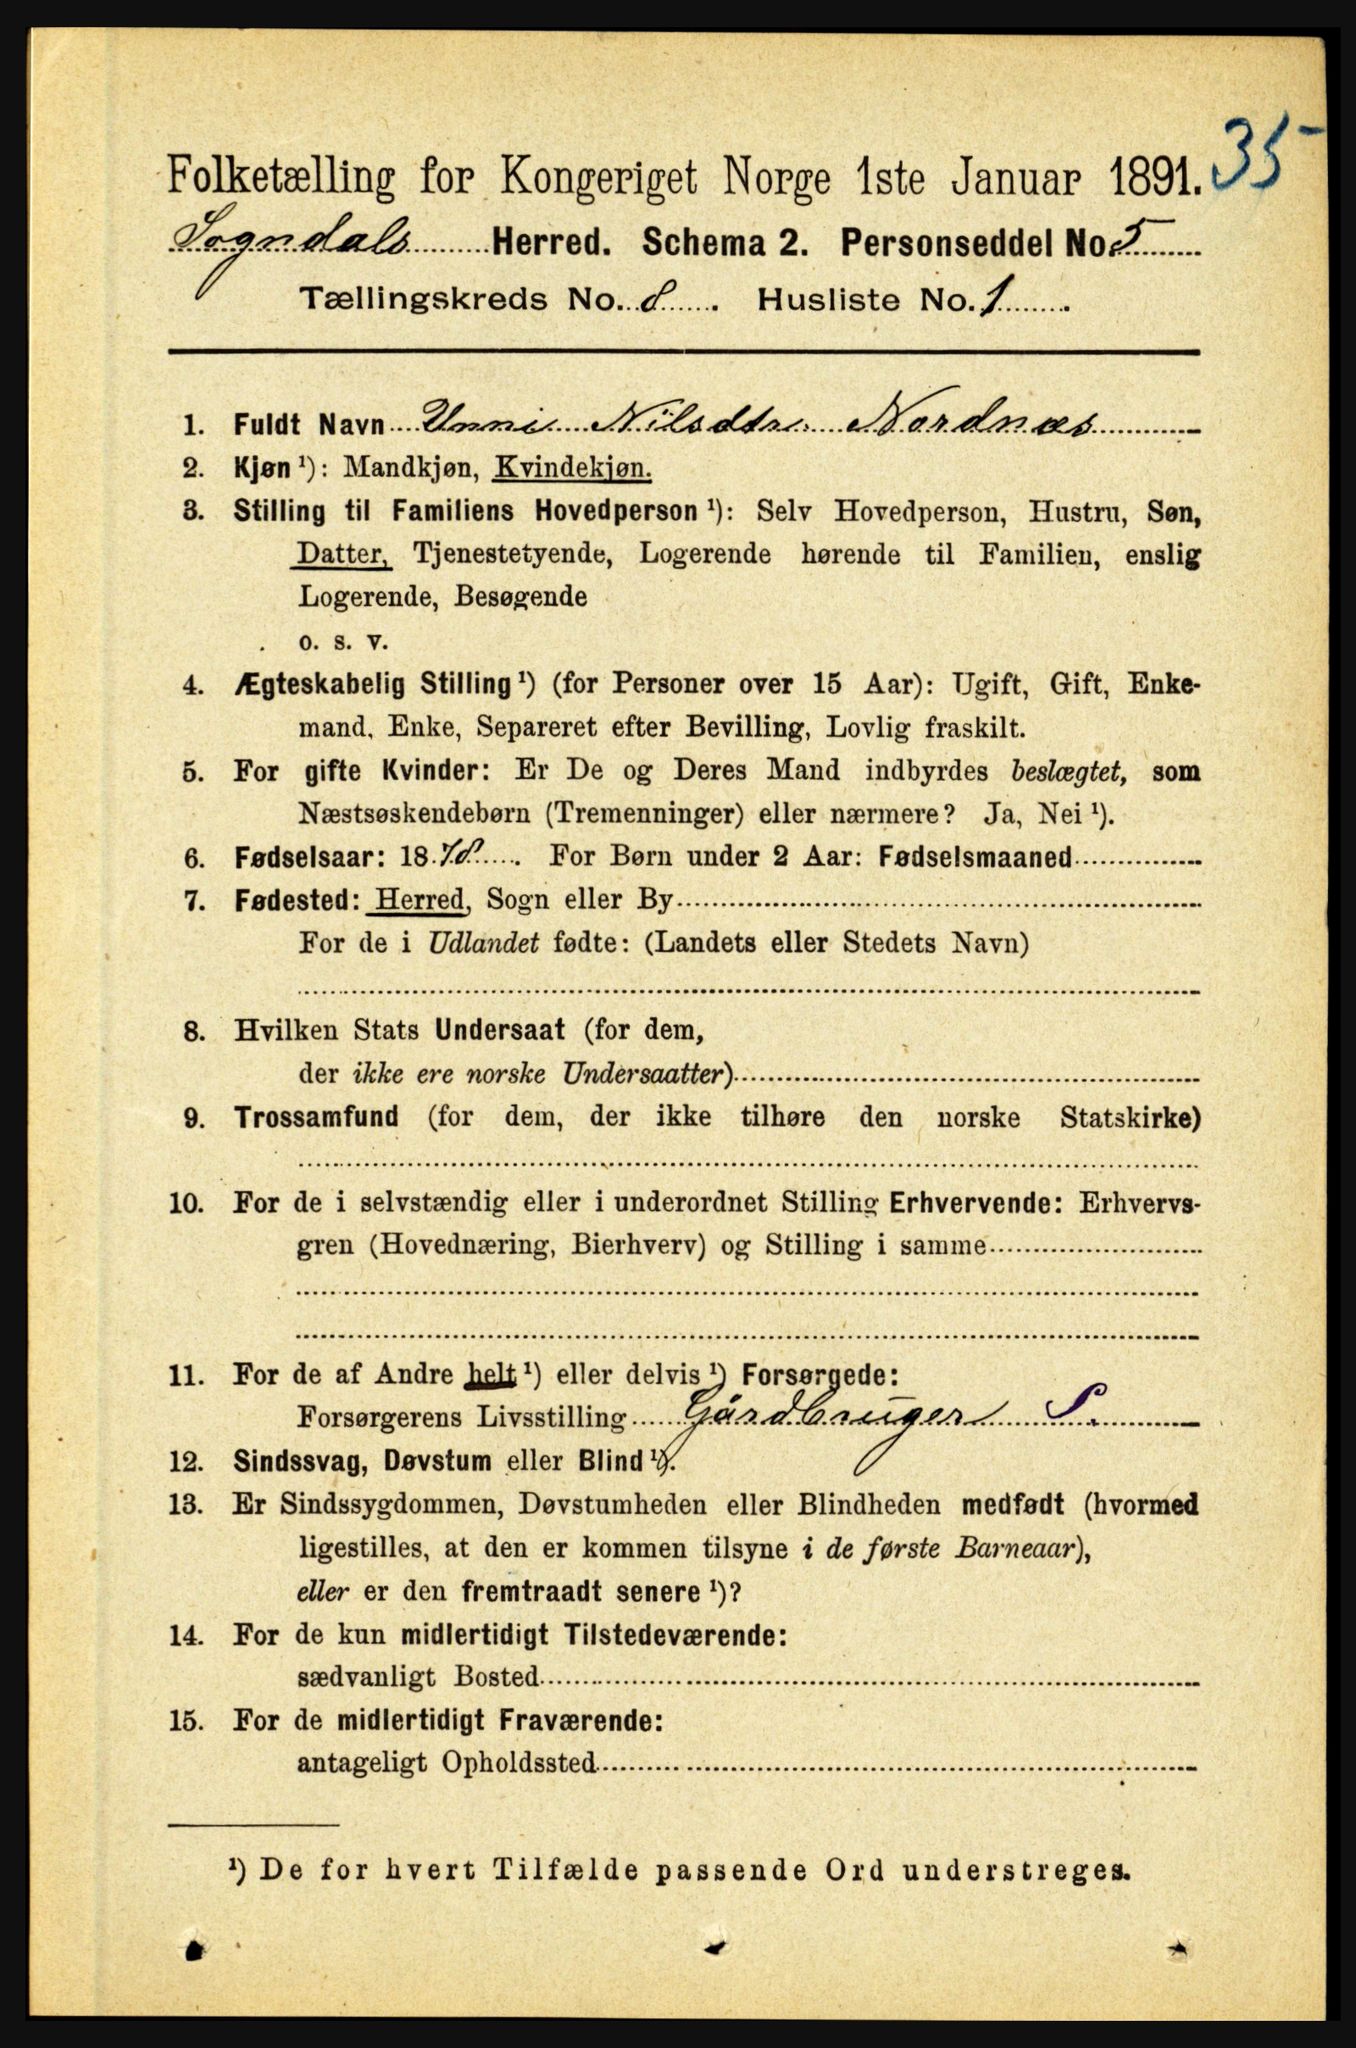 35
Folketælling for Kongeriget Norge 1ste Januar 1891.
Sogndals Herred. Schema 2. Personseddel No. 5
Tællingskreds No. 8. Husliste No. 1.
1. Fuldt Navn Unni Nilsdtr. Nordnæs
2. Kjøn ¹): Mandkjøn, Kvindekjøn.
3. Stilling til Familiens Hovedperson ¹): Selv Hovedperson, Hustru, Søn,
Datter, Tjenestetyende, Logerende hørende til Familien, enslig
Logerende, Besøgende
o. s. v.
4. Ægteskabelig Stilling ¹) (for Personer over 15 Aar): Ugift, Gift, Enke-
mand, Enke, Separeret efter Bevilling, Lovlig fraskilt.
5. For gifte Kvinder: Er De og Deres Mand indbyrdes beslægtet, som
Næstsøskendebørn (Tremenninger) eller nærmere? Ja, Nei ¹).
6. Fødselsaar: 1878. For Børn under 2 Aar: Fødselsmaaned
7. Fødested: Herred, Sogn eller By
For de i Udlandet fødte: (Landets eller Stedets Navn)
8. Hvilken Stats Undersaat (for dem,
der ikke ere norske Undersaatter)
9. Trossamfund (for dem, der ikke tilhøre den norske Statskirke)
10. For de i selvstændig eller i underordnet Stilling Erhvervende: Erhvervs-
gren (Hovednæring, Bierhverv) og Stilling i samme
11. For de af Andre helt ¹) eller delvis ¹) Forsørgede:
Forsørgerens Livsstilling Gårdbruger S.
12. Sindssvag, Døvstum eller Blind ¹).
13. Er Sindssygdommen, Døvstumheden eller Blindheden medfødt (hvormed
ligestilles, at den er kommen tilsyne i de første Barneaar),
eller er den fremtraadt senere ¹)?
14. For de kun midlertidigt Tilstedeværende:
sædvanligt Bosted
15. For de midlertidigt Fraværende:
antageligt Opholdssted
¹) De for hvert Tilfælde passende Ord understreges.